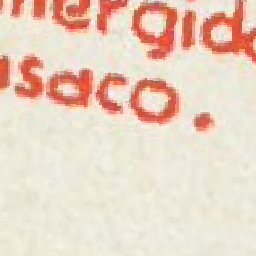 mergido
usaco.